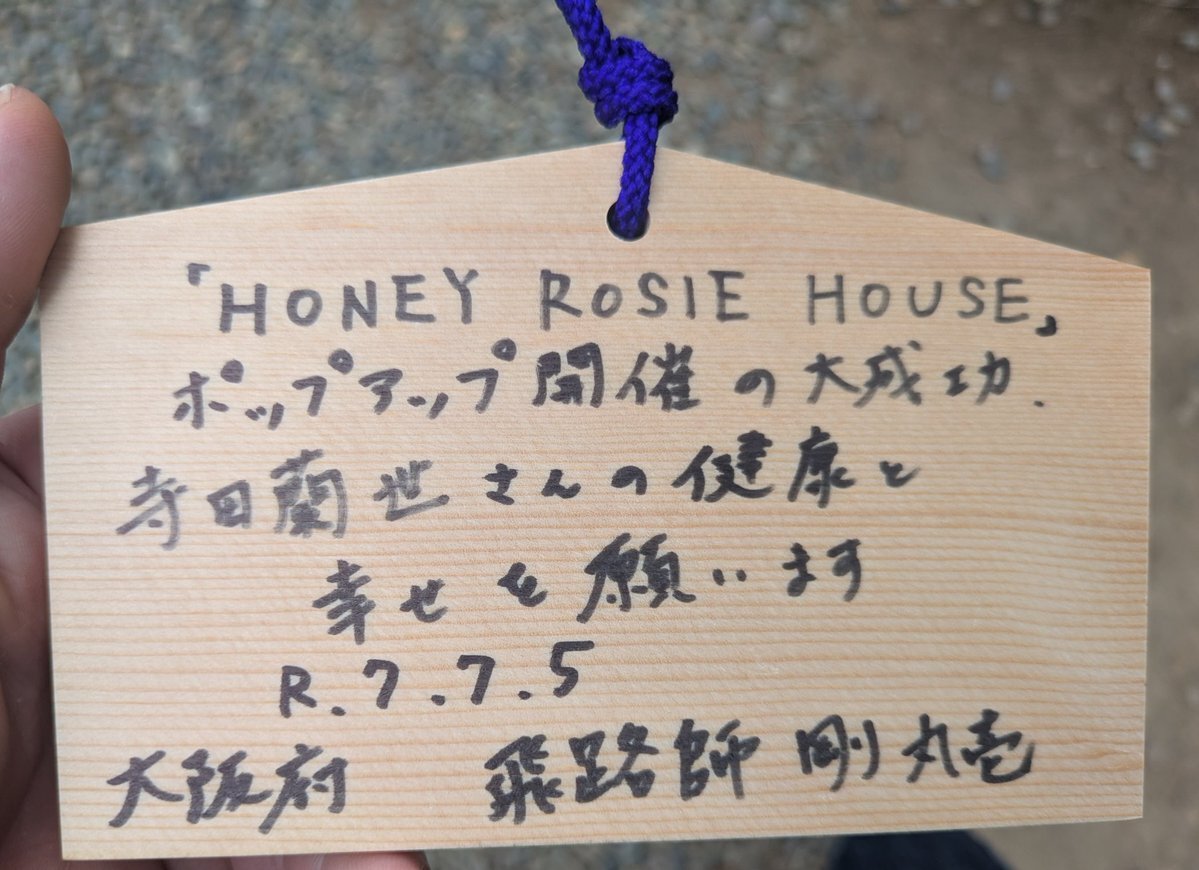 『HONEY ROSIE HOUSE』
ポップアップ開催の大成功.
寺田蘭世さんの健康と
幸せを願います
R.7.7.5
大阪府 飛路師 剛丸壱